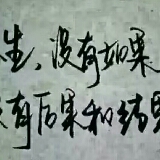 生,没有如果
有后果和结果